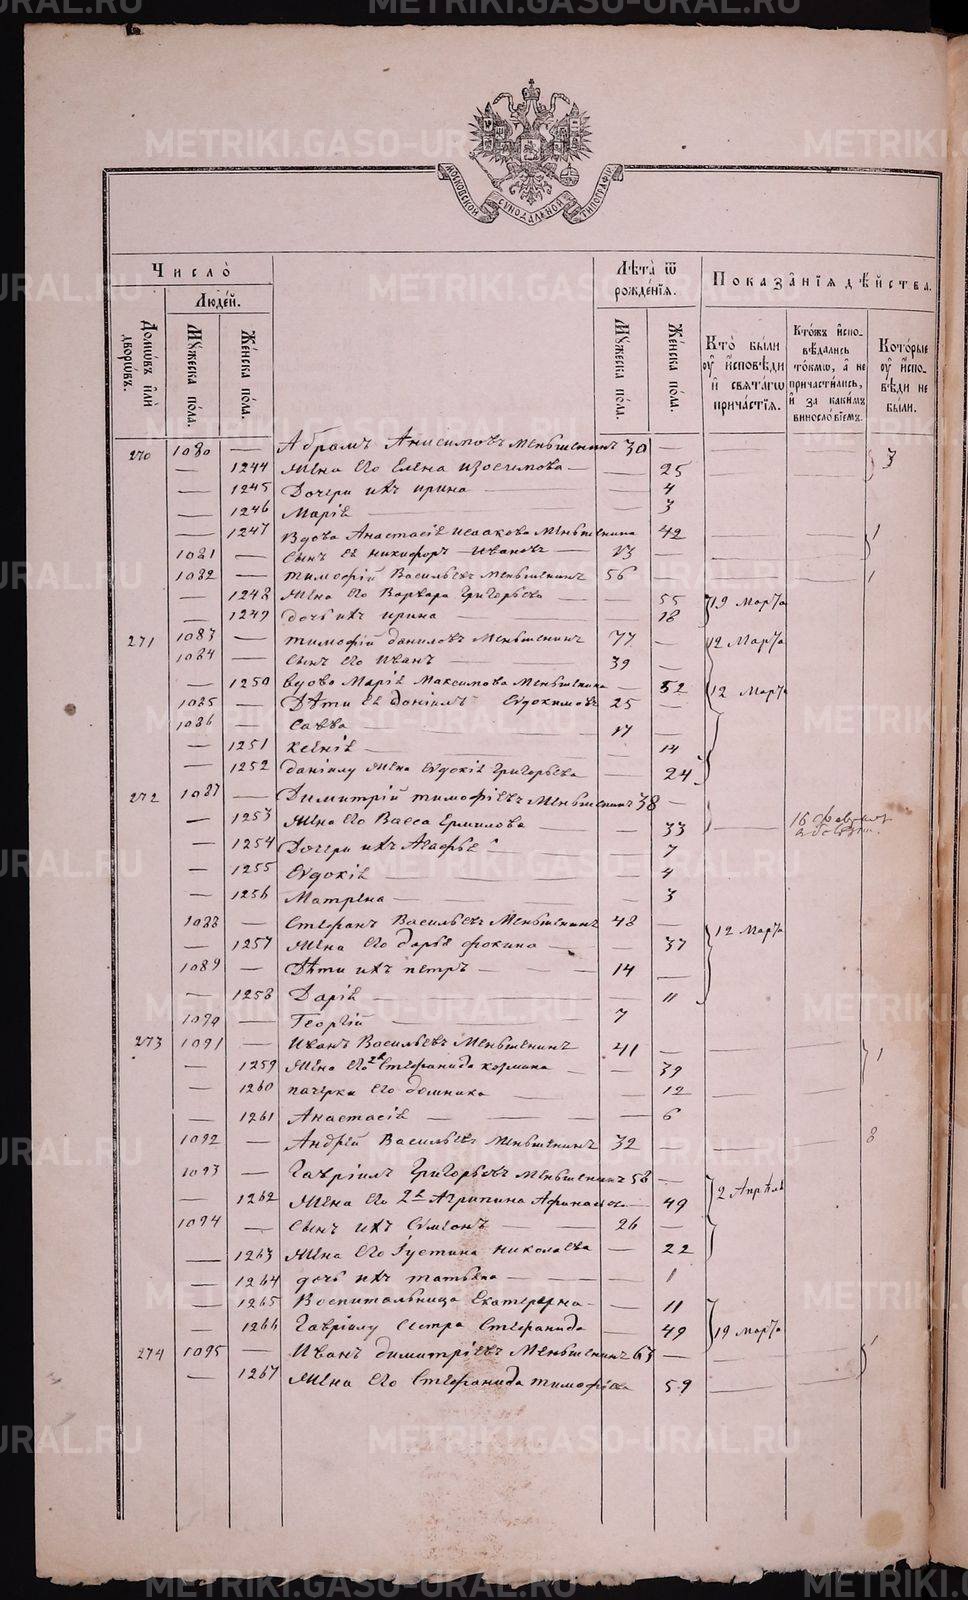 МОСКОВСКОЙ СУНОДАЛЬНОЙ ТИПОГРАФІИ
Число̀
Людей.
Домѡвъ или дворѡвъ.
Мꙋжеска пола.
Женска пола.
Лѣта ѿ рожденїѧ.
Мꙋжеска пола.
Женска пола.
Показанїѧ дѣйства.
Кто были оу исповѣди и свѧтагѡ причастїѧ.
Ктожъ исповѣдались токмѡ, а не причастились, и за какимъ винословїемъ.
Которые оу исповѣди не были.
270 1080 — Абрамъ Анисимовъ Меньшенинъ 30 — — — 3
— 1244 жена его Елена — — 25
— 1245 Дочери ихъ ирина — — 4
— 1246 Марія — — 3
— 1247 Вдова Анастасія Исаакова Меньшенина 42 — — 1
1081 — сынъ ея никифоръ Ивановъ — 13 — —
1082 — тимофій Васильевъ Меньшенинъ 56 — — — 1
— 1248 жена его Варвара Григорьева — — 55 19 Марта
— 1249 дочь ихъ ирина — — 18
271 1083 — тимофій даниловъ Меньшенинъ 77 — 12 Марта
1084 — сынъ его Иванъ — 39 —
— 1250 вдова Марія Максимова Меньшенина — 52 12 Марта
1085 — Дѣти ея даніилъ Евдокимовъ 25 —
1086 — Савва — 17 —
— 1251 ксенія — — 14
— 1252 даніилу жена Евдокія Григорьева — 24
272 1087 — Димитрій тимофіевъ Меньшенинъ 38 —
— 1253 жена его Васса Ермилова — — 33 — 16 февраля
— 1254 Дочери ихъ Агафья — — 7
— 1255 Евдокія — — 4
— 1256 Матрена — — 3
1088 — Стефанъ Васильевъ Меньшенинъ 48 — 12 Марта
— 1257 жена его дарья фокина — — 37
1089 — Дѣти ихъ петръ — 14 —
— 1258 Дарія — — 11
1090 — Георгій — 7
273 1091 — Иванъ Васильевъ Меньшенинъ 41 — — — 1
— 1259 жена его 2я Стефанида — — 39
— 1260 его домника — — 12 — —
— 1261 Анастасія — — 6
1092 — Андрей Васильевъ Меньшенинъ 32 — — — 8
1093 — Гавріилъ Григорьевъ Меньшенинъ 58 —
— 1262 жена его 2я Агрипина — 49 2 Апрѣля
1094 — сынъ ихъ Симеонъ — 26 —
— 1263 жена его Іустина николаева — 22
— 1264 дочь ихъ татьяна — — 1
— 1265 Воспитаньница Екатерина — — 11
— 1266 Гавріилу сестра Стефанида — 49 19 Марта
274 1095 — Иванъ димитріевъ Меньшенинъ 63 — — — 1
— 1267 жена его Стефанида тимофіева 59 — —
METRIKI.GASO-URAL.RU